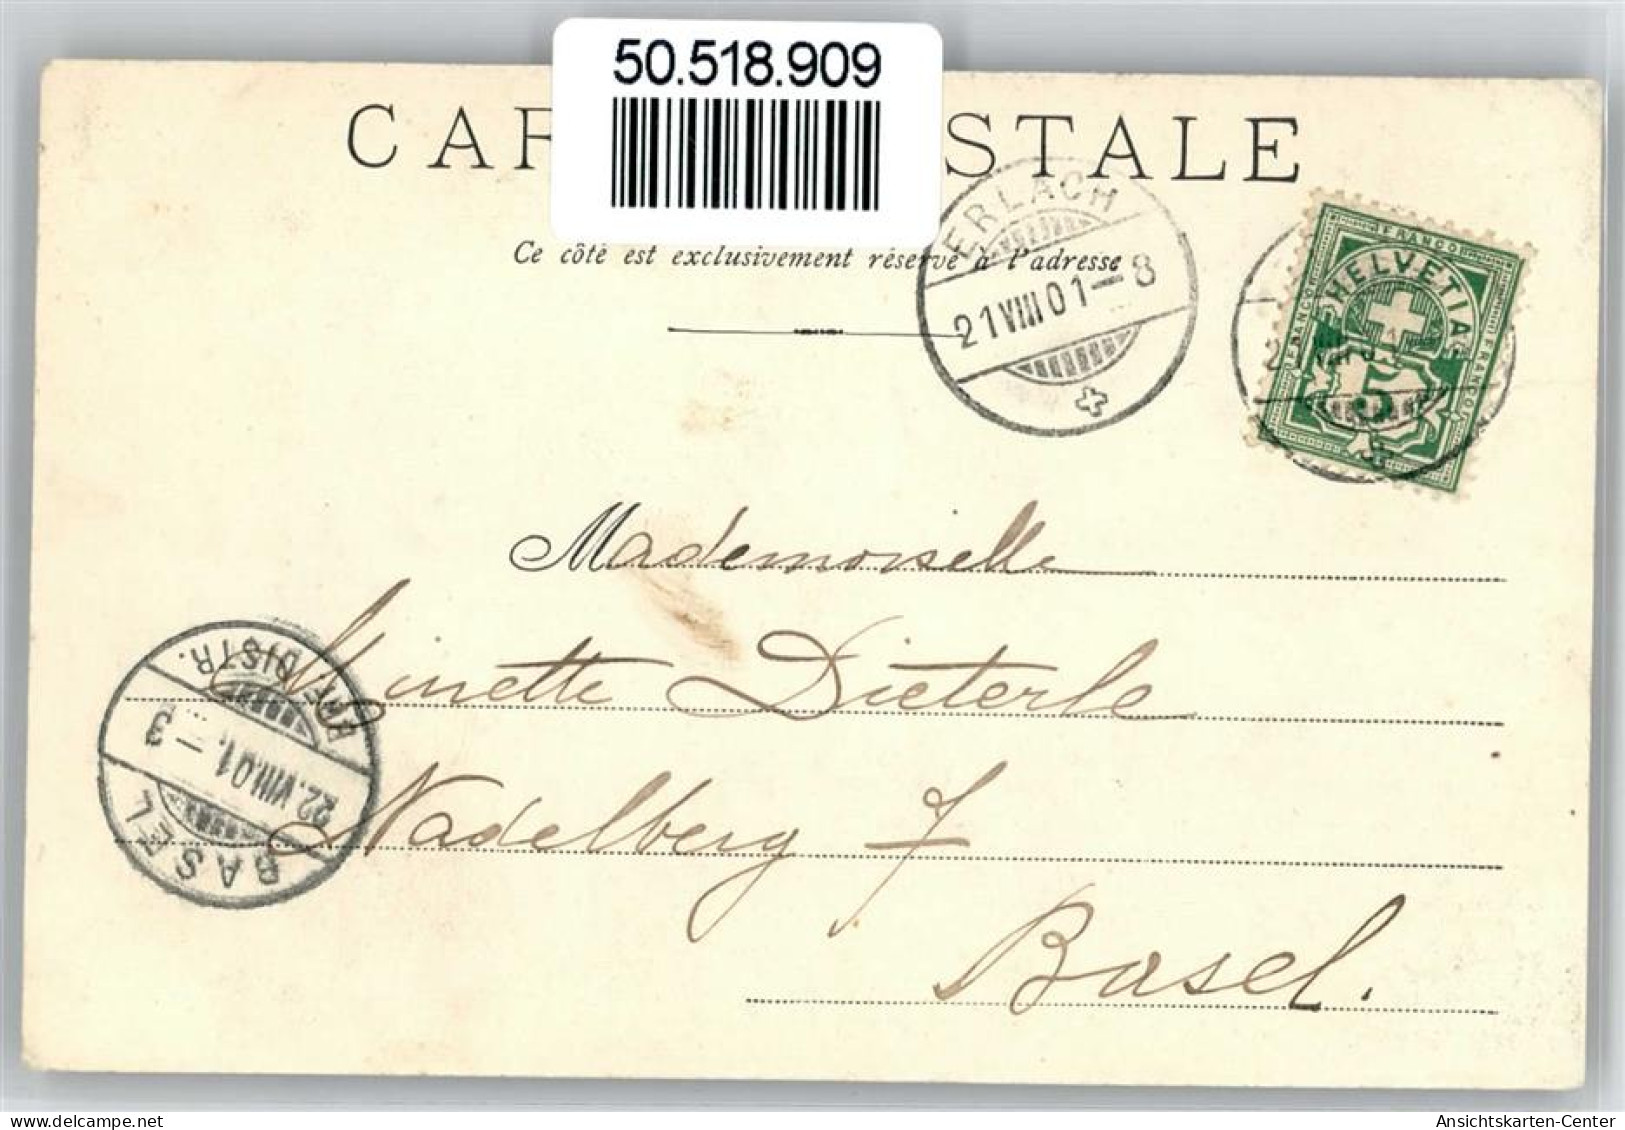 50.518.909
CAR STALE
Ce côté est exclusivement réservé à l'adresse
ERLACH
21 VIII 01 – 8
FRANCO
HELVETIA
FRANCO
FRANCO
5
Mademoiselle
Minette Dieterle
Nadelberg 7
Basel.
DISTR.
22.VIII.01. – 3
BASEL
Ansichtskarten-Center